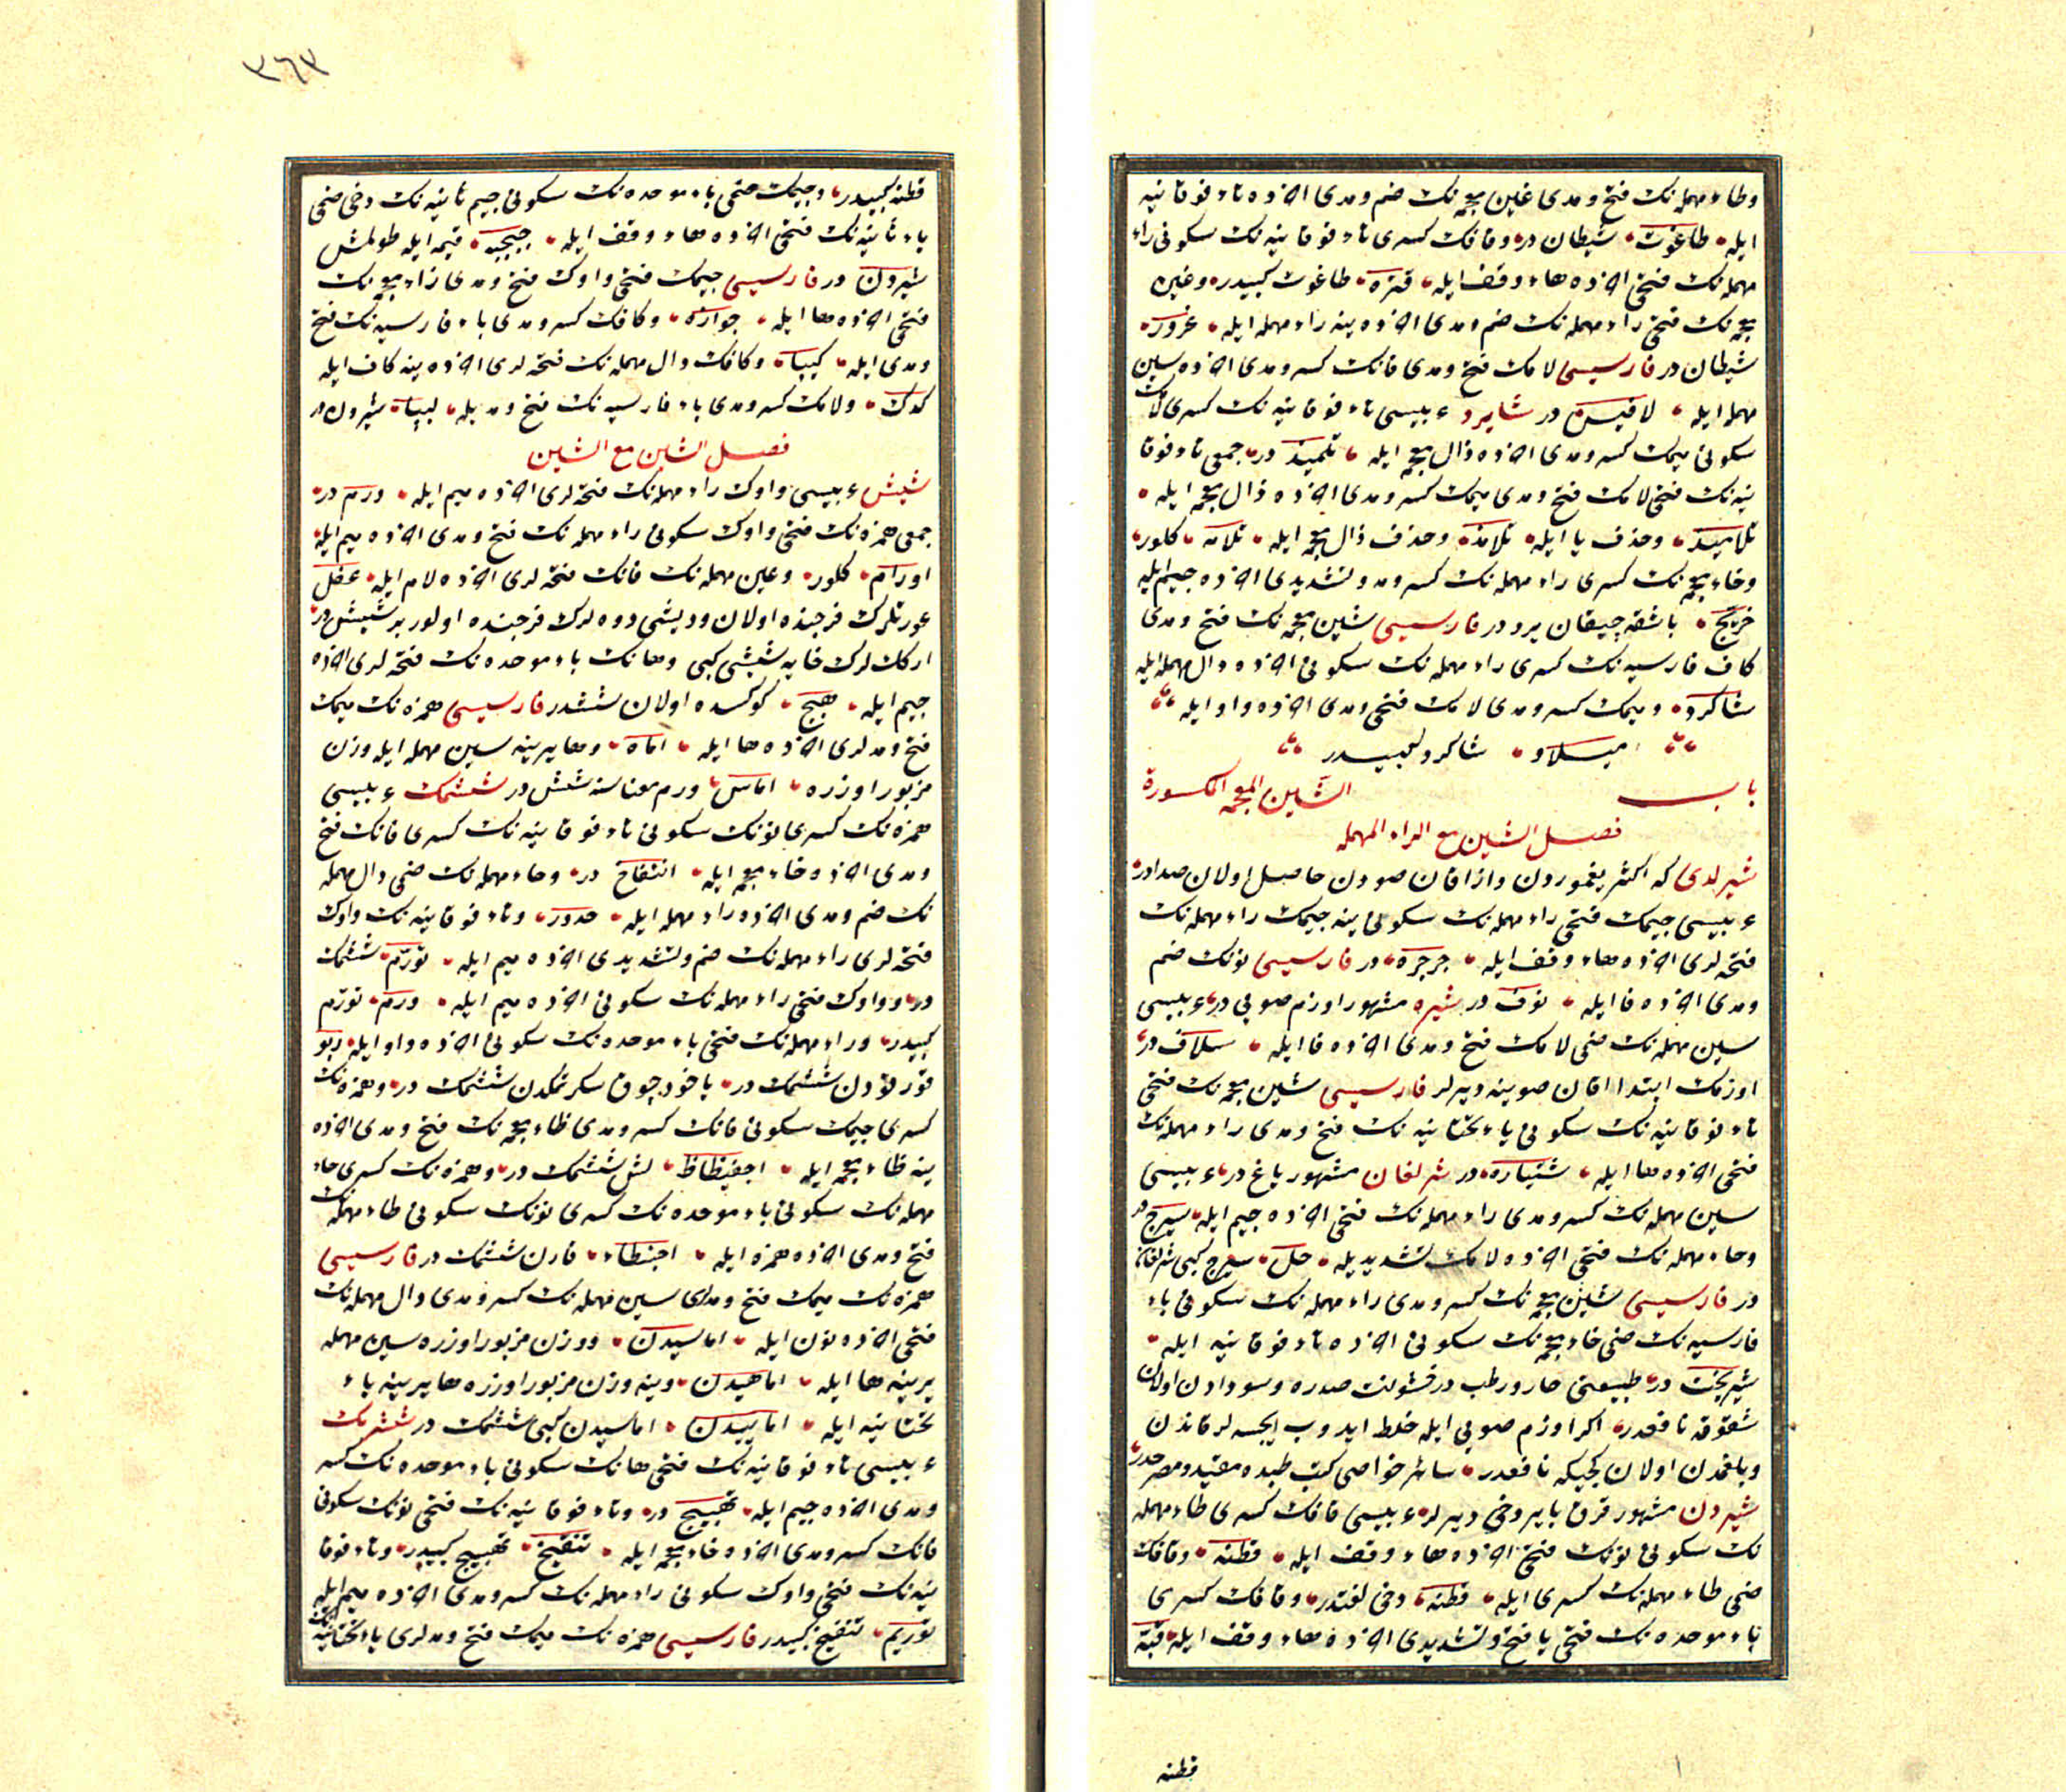 وطاء مهمله نك فتح ومدى غين معجمه نك ضم ومدى آخرده تاء فوقانيه
ايله طاغوت شيطان در وقافك كسرى تاء فوقانيه نك سكونى راء
مهمله نك فتحى آخرده هاء وقف ايله قترة طاغوت كبيدر وغين
معجمه نك فتحى راء مهمله نك ضم ومدى آخرده ينه راء مهمله ايله غرور
شيطان در فارسيسى لامك فتح ومدى قافك كسر ومدى آخرده سين
مهمله ايله لاقيس در شايرد عبيسى تاء فوقانيه نك كسرى لامك
سكونى ميمك كسر ومدى آخرده ذال معجمه ايله تلميذ در جمعى تاء فوقا
نيه نك فتحى لامك فتح ومدى ميمك كسر ومدى آخرده ذال معجمه ايله
تلاميذ وحذف يا ايله تلامذ وحذف ذال معجمه ايله تلام كلور
وخاء معجمه نك كسرى راء مهمله نك كسر ومد وتشديدى آخرده جيم ايله
خريج باشقه چيقان يرد در فارسيسى شين معجمه نك فتح ومدى
كاف فارسيه نك كسرى راء مهمله نك سكونى آخرده دال مهمله ايله
شاكرد وميمك كسر ومدى لامك فتحى ومدى آخرده واو ايله
ميلاو شاكرد كبيدر
باب الشين المعجمه المكسورة
فصل الشين مع الراء المهمله
شيرلدى كه اكثر يغموردن واز اقان صودن حاصل اولان صدادر
عبيسى جيمك فتحى راء مهمله نك سكونى ينه جيمك راء مهمله نك
فتحه لرى آخرده هاء وقف ايله جرجرة در فارسيسى نونك ضم
ومدى آخرده فا ايله نوف در شيره مشهور اوزم صويى در عبيسى
سين مهمله نك ضمى لامك فتح ومدى آخرده فا ايله سلاف در
اوزمك ابتدا اقان صوينه ديرلر فارسيسى شين معجمه نك فتحى
تاء فوقانيه نك سكونى ياء تحتانيه نك فتح ومدى راء مهمله نك
فتحى آخرده ها ايله شتياره در شرلغان مشهور ياغ در عبيسى
سين مهمله نك كسر ومدى راء مهمله نك فتحى آخرده جيم ايله سيرج در
وحاء مهمله نك فتحى آخرده لامك تشديديله حل سيرج كبى شرلغان
در فارسيسى شين معجمه نك كسر ومدى راء مهمله نك سكونى باء
فارسيه نك ضمى خاء معجمه نك سكونى آخرده تاء فوقانيه ايله
شيرپخت در طبيعتى حار ورطب در خشونت صدره وسودادن اولان
شقوقه نافعدر اكر اوزم صويى ايله خلط ايدوب ايچسه لر قاندن
وبلغمدن اولان كجيكه نافعدر سائر خواصى كتب طبده مقيد ومصرحدر
شيردن مشهور قرق باير دخى ديرلر عبيسى قافك كسرى طاء مهمله
نك سكونى نونك فتحى آخرده هاء وقف ايله قطنه وقافك
ضمى طاء مهمله نك كسرى ايله قطنه دخى لغتدر وقافك كسرى
باء موحده نك فتحى يا فتح وتشديدى آخرده هاء وقف ايله قبة
قطنه
٣٦٣
قطنه كبيدر وجيمك ضمى باء موحده نك سكونى جيم ثانيه نك دخى ضمى
باء ثانيه نك فتحى آخرده هاء وقف ايله جبجبه قيمه ايله طولمش
شيردن در فارسيسى جيمك فتحى واوك فتح ومدى زاء معجمه نك
فتحى آخرده ها ايله جوازه وكافك كسر ومدى باء فارسيه نك فتح
ومدى ايله كيپا وكافك دال مهمله نك فتحه لرى آخرده ينه كاف ايله
كدك ولامك كسر ومدى باء فارسيه نك فتح ومديله ليپا شيردن در
فصل الشين مع الشين
شيش عبيسى واوك راء مهمله نك فتحه لرى آخرده ميم ايله ورم در
جمعى همزه نك فتحى واوك سكونى راء مهمله نك فتح ومدى آخرده ميم ايله
اورام كلور وعين مهمله نك فانك فتحه لرى آخرده لام ايله عفل
عورتلرك فرجنده اولان وديشى دوه لرك فرجنده اولور بر شيش در
اركك لرك خايه شيشى كبى وهانك باء موحده نك فتحه لرى آخرده
جيم ايله هبج كوكسده اولان ششدر فارسيسى همزه نك ميمك
فتح ومدلرى آخرده ها ايله اماه وها يرينه سين مهمله ايله وزن
مزبور اوزره اماس ورم معناسنه شش در ششمك عبيسى
همزه نك كسرى نونك سكونى تاء فوقانيه نك كسرى فانك فتح
ومدى آخرده خاء معجمه ايله انتفاخ در وحاء مهمله نك ضمى دال مهمله
نك ضم ومدى آخرده راء مهمله ايله حدور وتاء فوقانيه نك واوك
فتحه لرى راء مهمله نك ضم وتشديدى آخرده ميم ايله تورم ششمك
در وواوك فتحى راء مهمله نك سكونى آخرده ميم ايله ورم تورم
كبيدر وراء مهمله نك فتحى باء موحده نك سكونى آخرده واو ايله ربو
قورقودن ششمك در ياخود چوق سكرتمكدن ششمك در وهمزه نك
كسرى جيمك سكونى فانك كسر ومدى ظاء معجمه نك فتح ومدى آخرده
ينه ظاء معجمه ايله اجفيظاظ لش ششمك در وهمزه نك كسرى حاء
مهمله نك سكونى باء موحده نك كسرى نونك سكونى طاء مهمله نك
فتح ومدى آخرده همزه ايله احبنطاء قارن ششمك در فارسيسى
همزه نك ميمك فتح ومدلرى سين مهمله نك كسر ومدى دال مهمله نك
فتحى آخرده نون ايله اماسيدن ووزن مزبور اوزره سين مهمله
يرينه ها ايله اماهيدن وينه وزن مزبور اوزره ها يرينه ياء
تحتانيه ايله اماييدن اماسيدن كبى ششمك در ششرمك
عبيسى تاء فوقانيه نك فتحى هانك سكونى باء موحده نك كسر
ومدى آخرده جيم ايله تهبيج در وتاء فوقانيه نك فتحى نونك سكونى
فانك كسر ومدى آخرده خاء معجمه ايله تنفيخ تهبيج كبيدر وتاء فوقا
نيه نك فتحى واوك سكونى راء مهمله نك كسر ومدى آخرده ميم ايله
توريم تنفيخ كبيدر فارسيسى همزه نك ميمك فتح ومدلرى ياء تحتانيه نك